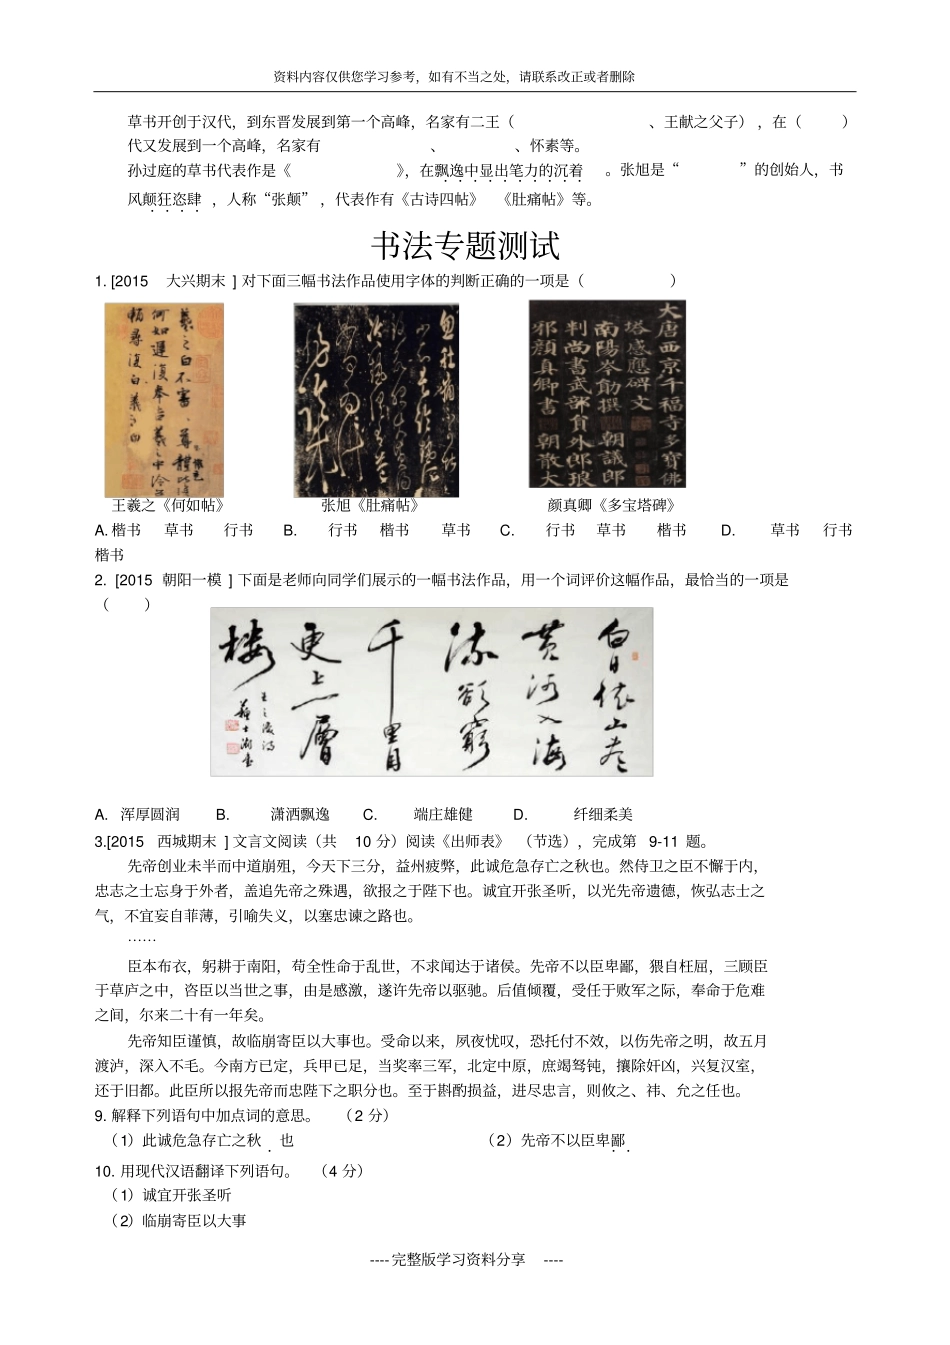 资料内容仅供您学习参考，如有不当之处，请联系改正或者删除
草书开创于汉代，到东晋发展到第一个高峰，名家有二王（ 、王献之父子），在（ ）
代又发展到一个高峰，名家有 、 、怀素等。
孙过庭的草书代表作是《 》，在飘逸中显出笔力的沉着 。张旭是“ ”的创始人，书
风颠狂恣肆 ，人称“张颠” ，代表作有《古诗四帖》 《肚痛帖》等。
书法专题测试
1. [2015 大兴期末 ] 对下面三幅书法作品使用字体的判断正确的一项是（ ）
羲之白不審尊體比
何如遲復奉告羲之中冷
賴尋復白羲之白
忽肚痛不可堪
大唐西京千福寺多寶佛
塔感應碑文
南陽岑勛撰 朝議郎
判尚書武部員外郎琅
邪顏真卿書 朝散大
王羲之《何如帖》 张旭《肚痛帖》 颜真卿《多宝塔碑》
A. 楷书 草书 行书 B. 行书 楷书 草书 C. 行书 草书 楷书 D. 草书 行书
楷书
2. [2015 朝阳一模 ] 下面是老师向同学们展示的一幅书法作品，用一个词评价这幅作品，最恰当的一项是
（ ）
白日依山尽
黄河入海
流欲窮
千里目
更上一層
楼
王之涣诗
A. 浑厚圆润 B. 潇洒飘逸 C. 端庄雄健 D. 纤细柔美
3.[2015 西城期末 ] 文言文阅读（共 10 分）阅读《出师表》 （节选），完成第 9-11 题。
先帝创业未半而中道崩殂，今天下三分，益州疲弊，此诚危急存亡之秋也。然侍卫之臣不懈于内，
忠志之士忘身于外者，盖追先帝之殊遇，欲报之于陛下也。诚宜开张圣听，以光先帝遗德，恢弘志士之
气，不宜妄自菲薄，引喻失义，以塞忠谏之路也。
……
臣本布衣，躬耕于南阳，苟全性命于乱世，不求闻达于诸侯。先帝不以臣卑鄙，猥自枉屈，三顾臣
于草庐之中，咨臣以当世之事，由是感激，遂许先帝以驱驰。后值倾覆，受任于败军之际，奉命于危难
之间，尔来二十有一年矣。
先帝知臣谨慎，故临崩寄臣以大事也。受命以来，夙夜忧叹，恐托付不效，以伤先帝之明，故五月
渡泸，深入不毛。今南方已定，兵甲已足，当奖率三军，北定中原，庶竭驽钝，攘除奸凶，兴复汉室，
还于旧都。此臣所以报先帝而忠陛下之职分也。至于斟酌损益，进尽忠言，则攸之、祎、允之任也。
9. 解释下列语句中加点词的意思。 （2 分）
（1）此诚危急存亡之秋 也 （2）先帝不以臣卑鄙
10. 用现代汉语翻译下列语句。 （4 分）
（1）诚宜开张圣听
（2）临崩寄臣以大事
---- 完整版学习资料分享 ----